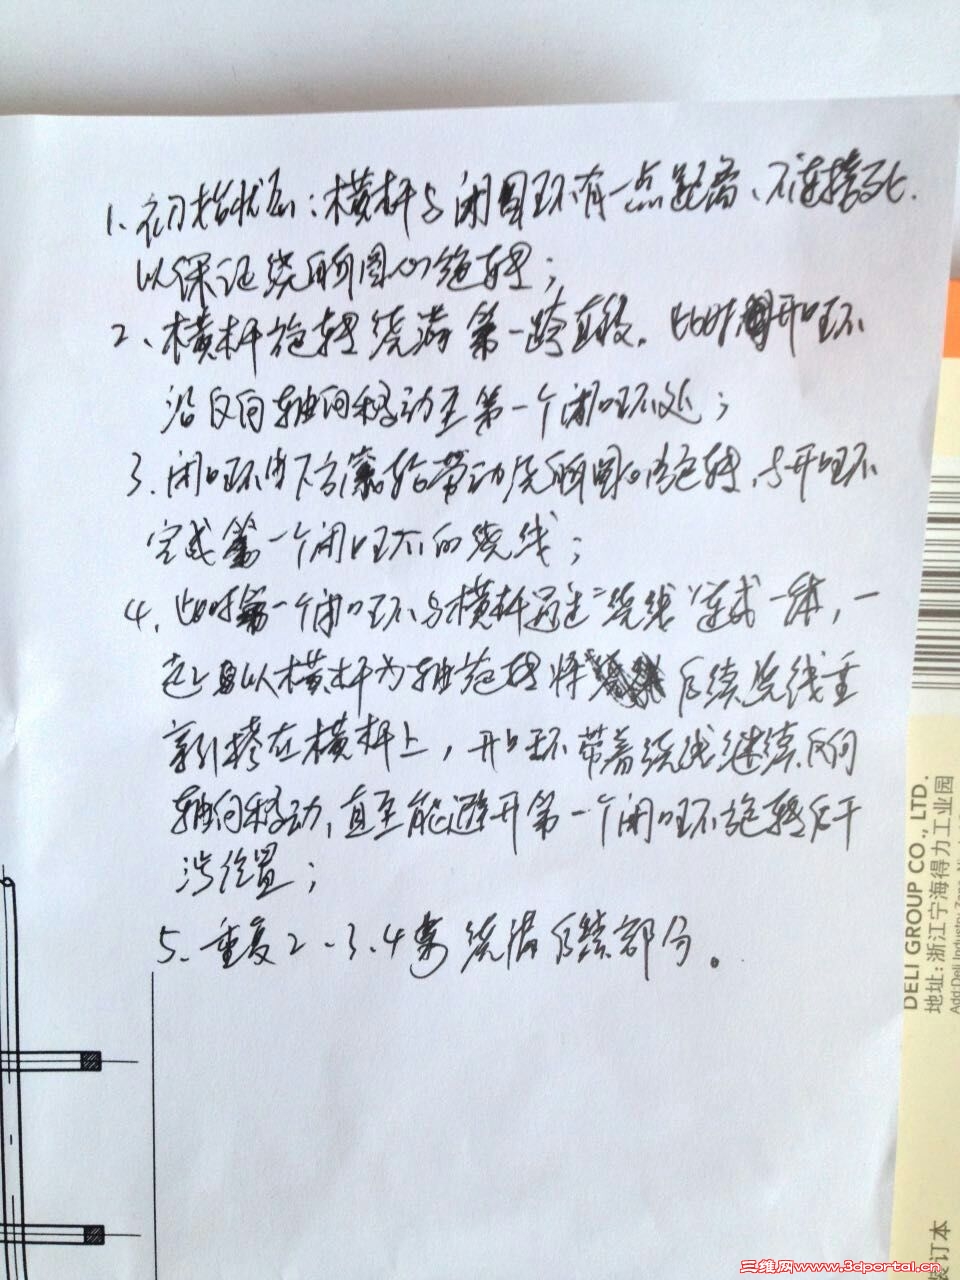 1、初始状态：横杆与闭口环有一点距离、不连接死.
以保证绕所圆心旋转；
2、横杆旋转绕满第一跨直段. 此时开口环
沿反向轴向移动至第一个闭口环处；
3、闭口环由下方滚轮带动绕所圆心旋转,与开口环
完成第一个闭口环的绕线；
4、此时第一个闭口环与横杆通过"绕线"连成一体，一
起以横杆为轴旋转将 后续绕线重
新搭在横杆上，开口环带着绕线继续反向
轴向移动,直至能避开第一个闭口环旋转后干
涉位置；
5、重复2、3、4步 绕满后续部分。
DELI GROUP CO., LTD.
地址:浙江宁海得力工业园
Add:Deli Industry Zone, Ni
装订本
三维网www.3dportal.cn